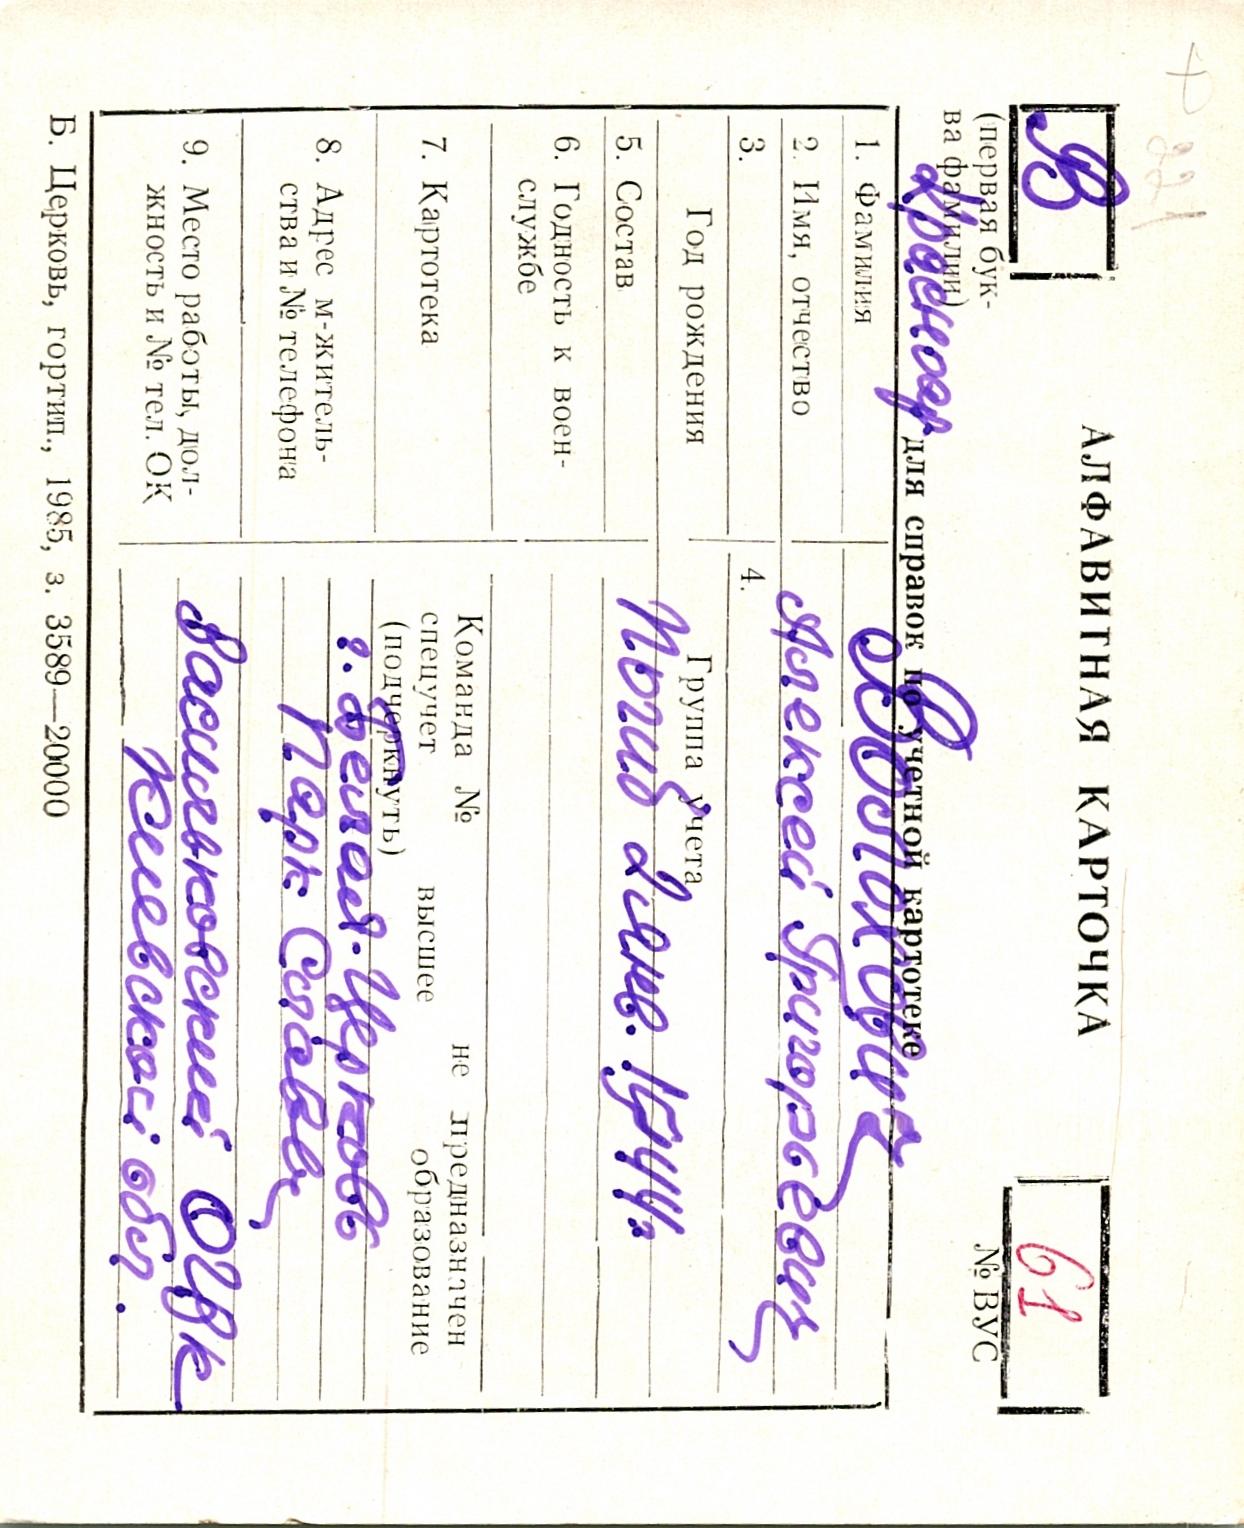 Ф
221
В
АЛФАВИТНАЯ КАРТОЧКА
61
(первая бук-
ва фамилии)
№ ВУС
Краснояр
для справок по учетной картотеке
1. Фамилия
Волохович
2. Имя, отчество
Алексей Григорьевич
3.
4.
Год рождения
Группа учета
5. Состав
Погиб 2 янв. 1944г.
6. Годность к воен-
службе
7. Картотека
Команда № не предназначен
спецучет высшее образование
(подчеркнуть)
8. Адрес м-житель-
ства и № телефона
г. Белая-Церковь
Парк Славы
9. Место работы, дол-
жность и № тел. ОК
Васильковский ОГВК
Киевской обл.
Б. Церковь, гортип., 1985, з. 3589—20000